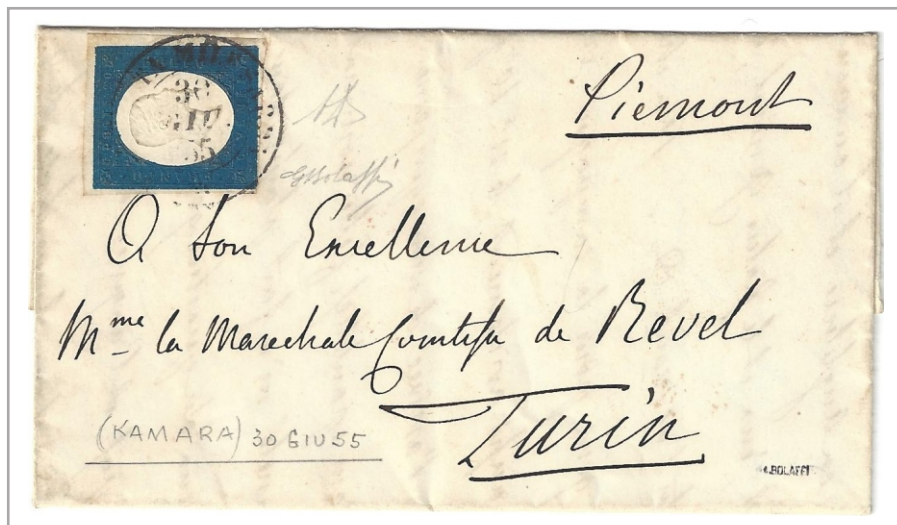 30
GIU
55
Piemont
GBolaffi
A Son Excellence
Mme la Marechale Comtesse de Revel
Turin
(KAMARA) 30 GIU 55
A.BOLAFFI